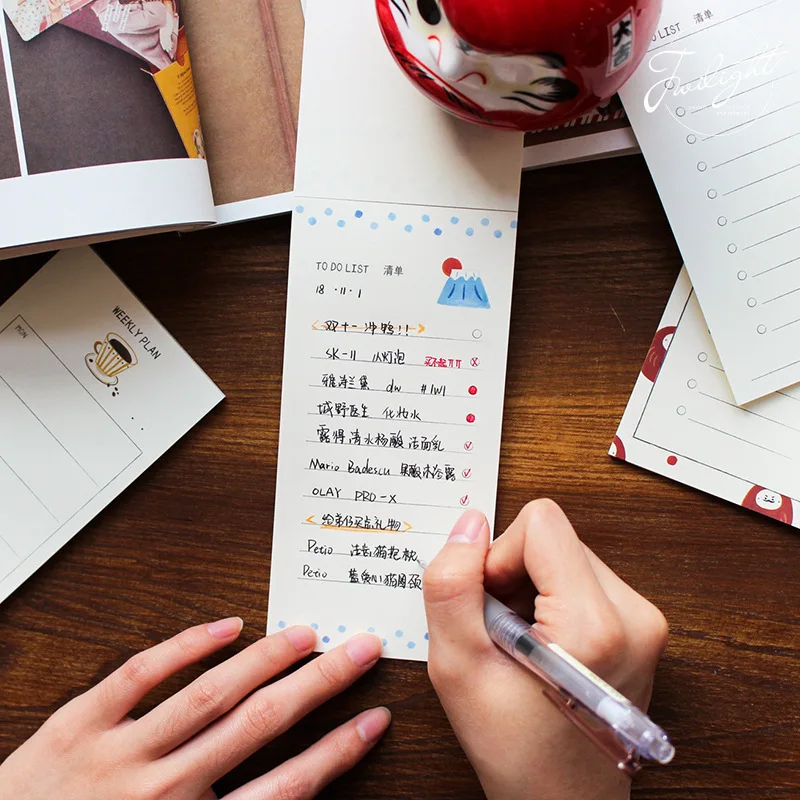 TO DO LIST 清单
18 · 11 · 1
<双十一冲鸭!!>
SK-II 小灯泡 买不起
雅诗兰黛 dw #1W1
城野医生 化妆水
露得清水杨酸洁面乳
Mario Badescu 果酸
OLAY PRO-X
<给弟仔买点礼物>
Petio 猫抱枕
Petio 猫
WEEKLY PLAN
MON
大吉
DO LIST 清单
Twilight